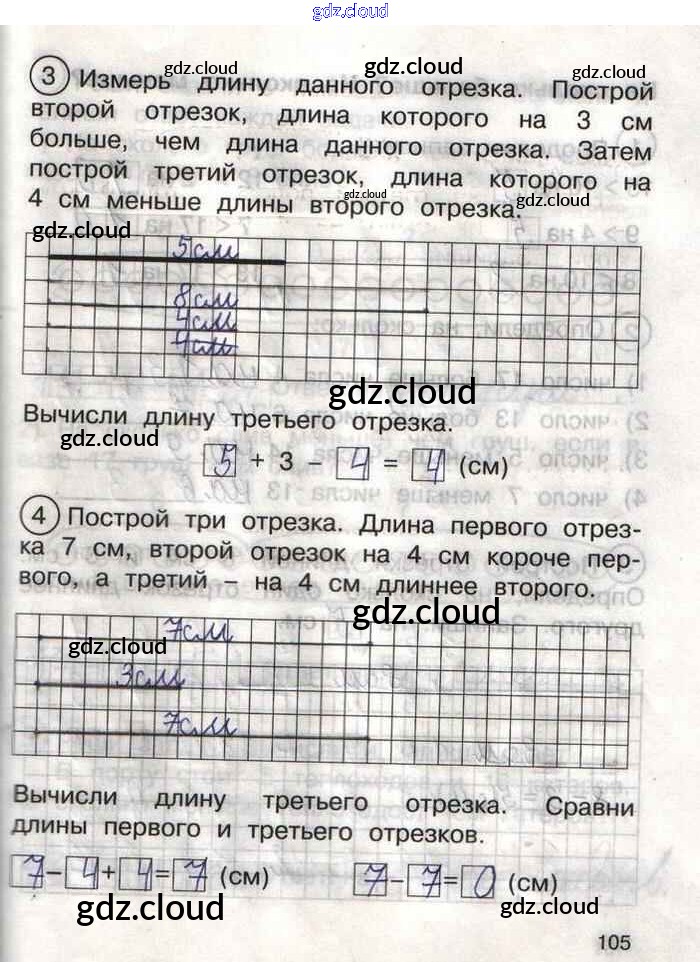 gdz.cloud
3 Измерь длину данного отрезка. Построй
второй отрезок, длина которого на 3 см
больше, чем длина данного отрезка. Затем
построй третий отрезок, длина которого на
4 см меньше длины второго отрезка.
5см
8см
4см
4см
Вычисли длину третьего отрезка.
5 + 3 – 4 = 4 (см)
4 Построй три отрезка. Длина первого отрез-
ка 7 см, второй отрезок на 4 см короче пер-
вого, а третий – на 4 см длиннее второго.
7см
3см
7см
Вычисли длину третьего отрезка. Сравни
длины первого и третьего отрезков.
7 – 4 + 4 = 7 (см) 7 – 7 = 0 (см)
105
gdz.cloud
gdz.cloud
gdz.cloud
gdz.cloud
gdz.cloud
gdz.cloud
gdz.cloud
gdz.cloud
gdz.cloud
gdz.cloud
gdz.cloud
gdz.cloud
gdz.cloud
gdz.cloud